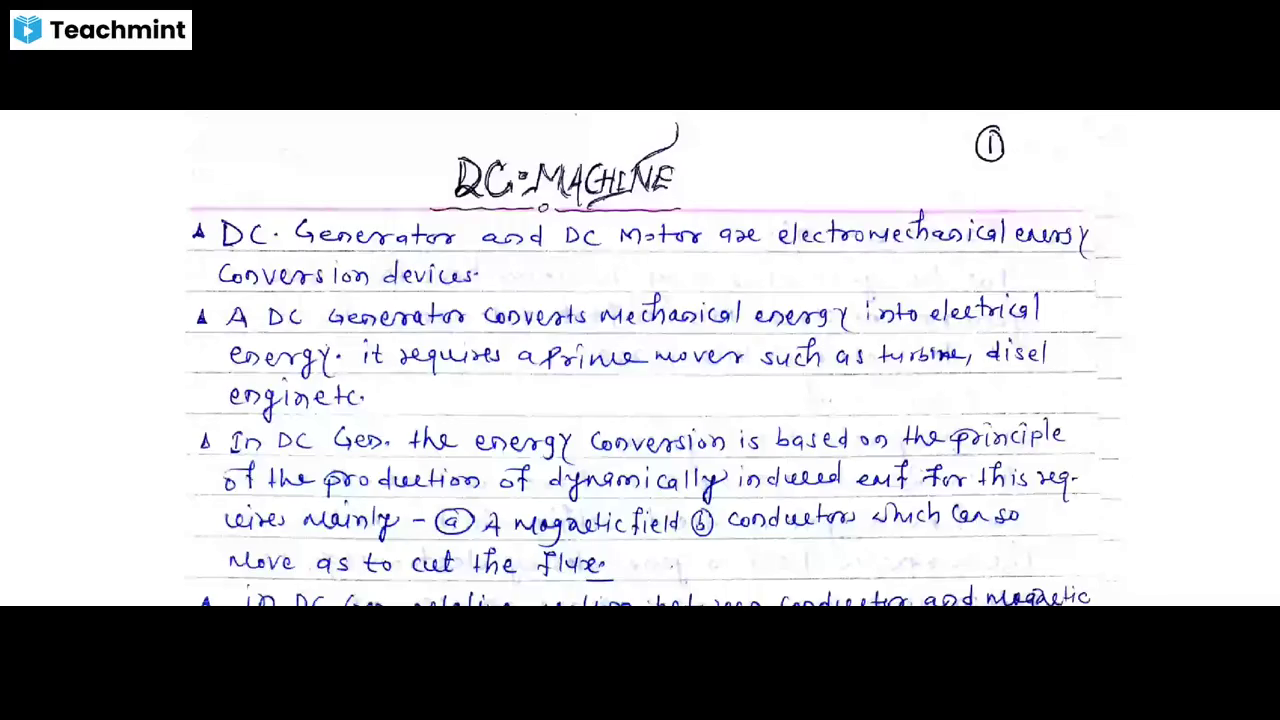 Teachmint
①
DC:MACHINE
DC. Generator and DC Motor are electromechanical energy
conversion devices.
A DC Generator converts mechanical energy into electrical
energy. it requires a Prime mover such as turbine, disel
engin etc.
In DC Gen. the energy conversion is based on the principle
of the production of dynamically induced emf for this req-
uires mainly - ⓐ A magnetic field ⓑ conductors which can so
move as to cut the flux.
in DC Gen relative motion between conductor and magnetic